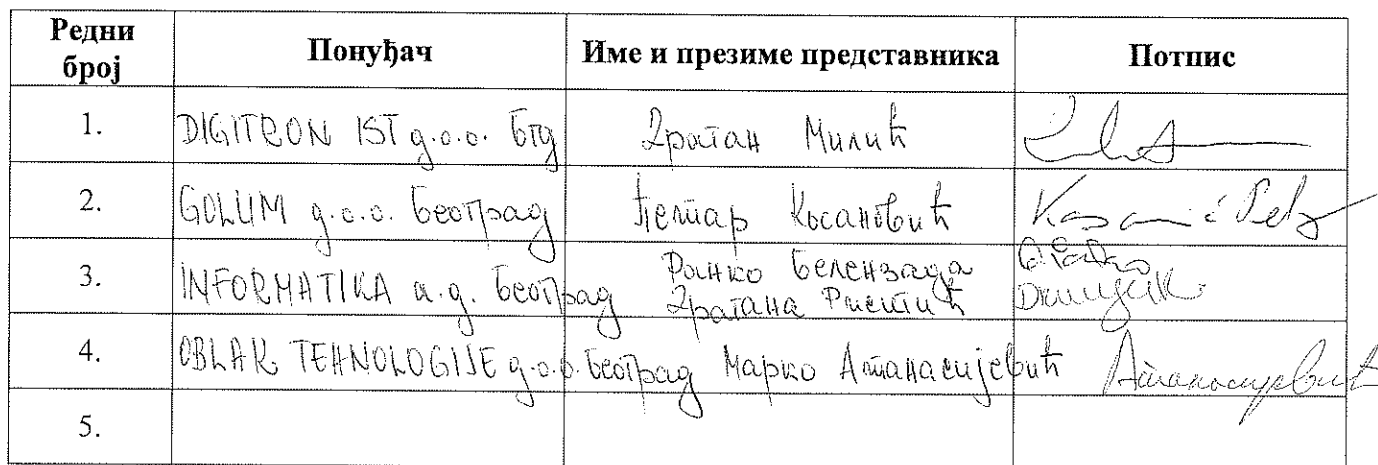 Редни број Понуђач Име и презиме представника Потпис
1. DIGITRON IST д.о.о. Бгд Драган Милић
2. GOLUM д.о.о. Београд Петар Косановић
3. INFORMATIKA а.д. Београд Ранко
Драгана Ристић
4. OBLAK TEHNOLOGIJE д.о.о. Београд Марко Атанасијевић Атанасијевић
5.